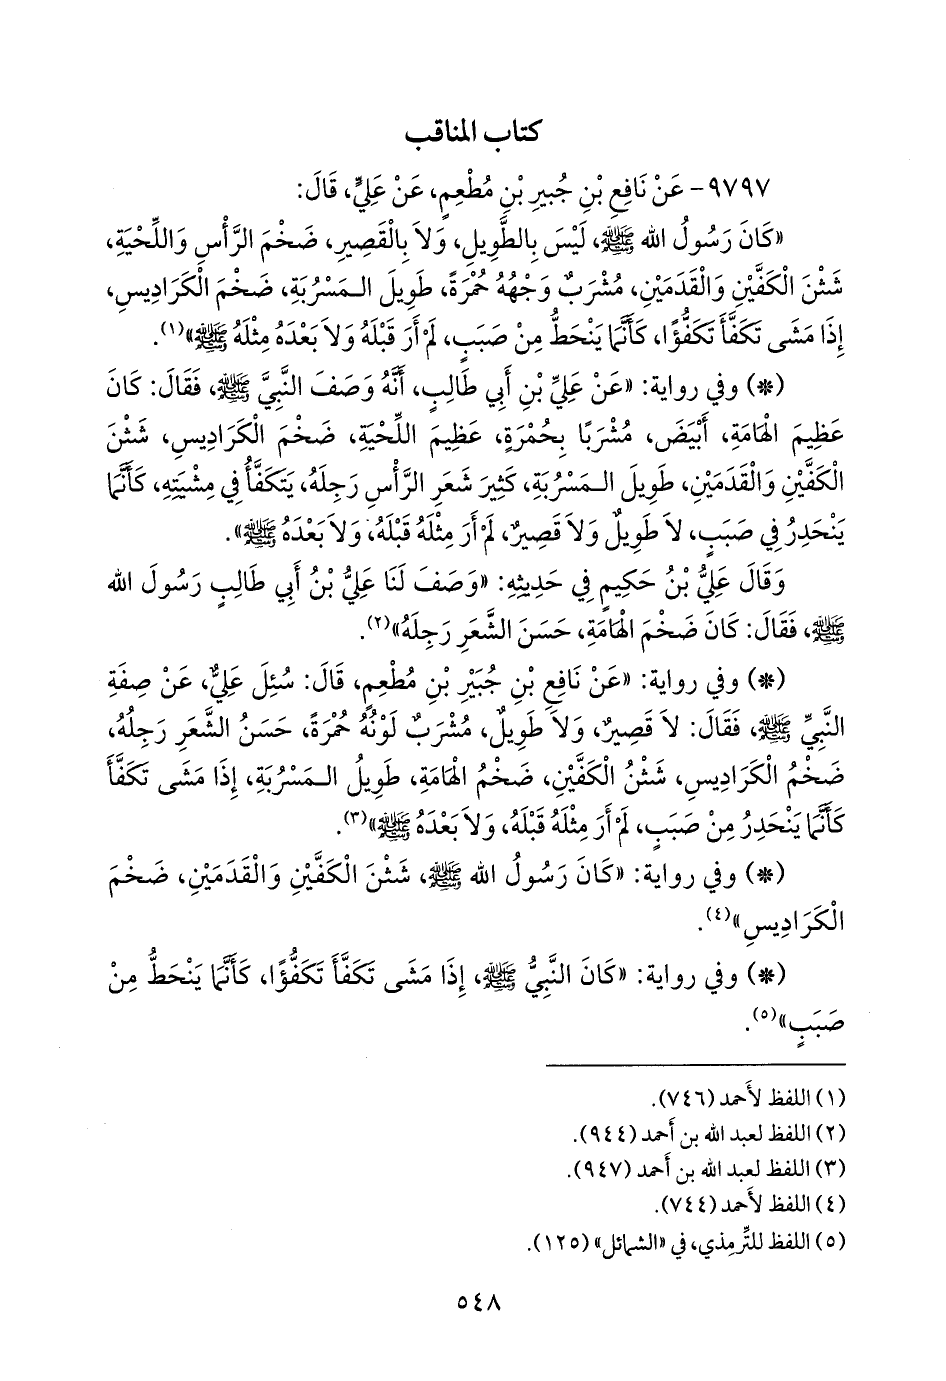 كتاب المناقب
٩٧٩٧- عَنْ نَافِعِ بْنِ جُبيرِ بْنِ مُطْعِمٍ، عَنْ عَلِيٍّ، قَالَ:
«كَانَ رَسُولُ الله ﷺ، لَيْسَ بِالطَّوِيلِ، وَلاَ بِالْقَصِيرِ، ضَخْمَ الرَّأْسِ وَاللِّحْيَةِ،
شَثْنَ الْكَفَّيْنِ وَالْقَدَمَيْنِ، مُشْرَبٌ وَجْهُهُ حُمْرَةً، طَوِيلَ الـمَسْرُبَةِ، ضَخْمَ الْكَرَادِيسِ،
إِذَا مَشَى تَكَفَّأَ تَكَفُّؤًا، كَأَنَّمَا يَنْحَطُّ مِنْ صَبَبٍ، لَمْ أَرَ قَبْلَهُ وَلاَ بَعْدَهُ مِثْلَهُ ﷺ»(١).
(*) وفي رواية: «عَنْ عَلِيِّ بْنِ أَبي طَالِبٍ، أَنَّهُ وَصَفَ النَّبِيَّ ﷺ، فَقَالَ: كَانَ
عَظِيمَ الْهَامَةِ، أَبْيَضَ، مُشْرَبًا بِحُمْرَةٍ، عَظِيمَ اللِّحْيَةِ، ضَخْمَ الْكَرَادِيسِ، شَثْنَ
الْكَفَّيْنِ وَالْقَدَمَيْنِ، طَوِيلَ الـمَسْرُبَةِ، كَثِيرَ شَعَرِ الرَّأْسِ رَجِلَهُ، يَتَكَفَّأُ فِي مِشْيَتِهِ، كَأَنَّمَا
يَنْحَدِرُ فِي صَبَبٍ، لاَ طَوِيلٌ وَلاَ قَصِيرٌ، لَمْ أَرَ مِثْلَهُ قَبْلَهُ، وَلاَ بَعْدَهُ ﷺ».
وَقَالَ عَلِيُّ بْنُ حَكِيمٍ فِي حَدِيثِهِ: «وَصَفَ لَنَا عَلِيُّ بْنُ أَبي طَالِبٍ رَسُولَ الله
ﷺ، فَقَالَ: كَانَ ضَخْمَ الْهَامَةِ، حَسَنَ الشَّعَرِ رَجِلَهُ»(٢).
(*) وفي رواية: «عَنْ نَافِعِ بْنِ جُبَيْرِ بْنِ مُطْعِمٍ، قَالَ: سُئِلَ عَلِيٌّ، عَنْ صِفَةِ
النَّبِيِّ ﷺ، فَقَالَ: لاَ قَصِيرٌ، وَلاَ طَوِيلٌ، مُشْرَبٌ لَوْنُهُ حُمْرَةً، حَسَنُ الشَّعَرِ رَجِلُهُ،
ضَخْمُ الْكَرَادِيسِ، شَثْنُ الْكَفَّيْنِ، ضَخْمُ الْهَامَةِ، طَوِيلُ الـمَسْرُبَةِ، إِذَا مَشَى تَكَفَّأَ
كَأَنَّمَا يَنْحَدِرُ مِنْ صَبَبٍ، لَمْ أَرَ مِثْلَهُ قَبْلَهُ، وَلاَ بَعْدَهُ ﷺ»(٣).
(*) وفي رواية: «كَانَ رَسُولُ الله ﷺ، شَثْنَ الْكَفَّيْنِ وَالْقَدَمَيْنِ، ضَخْمَ
الْكَرَادِيسِ»(٤).
(*) وفي رواية: «كَانَ النَّبِيُّ ﷺ، إِذَا مَشَى تَكَفَّأَ تَكَفُّؤًا، كَأَنَّمَا يَنْحَطُّ مِنْ
صَبَبٍ»(٥).
(١) اللفظ لأَحمد (٧٤٦).
(٢) اللفظ لعبد الله بن أَحمد (٩٤٤).
(٣) اللفظ لعبد الله بن أَحمد (٩٤٧).
(٤) اللفظ لأَحمد (٧٤٤).
(٥) اللفظ للتِّرمِذي، في «الشمائل» (١٢٥).
٥٤٨